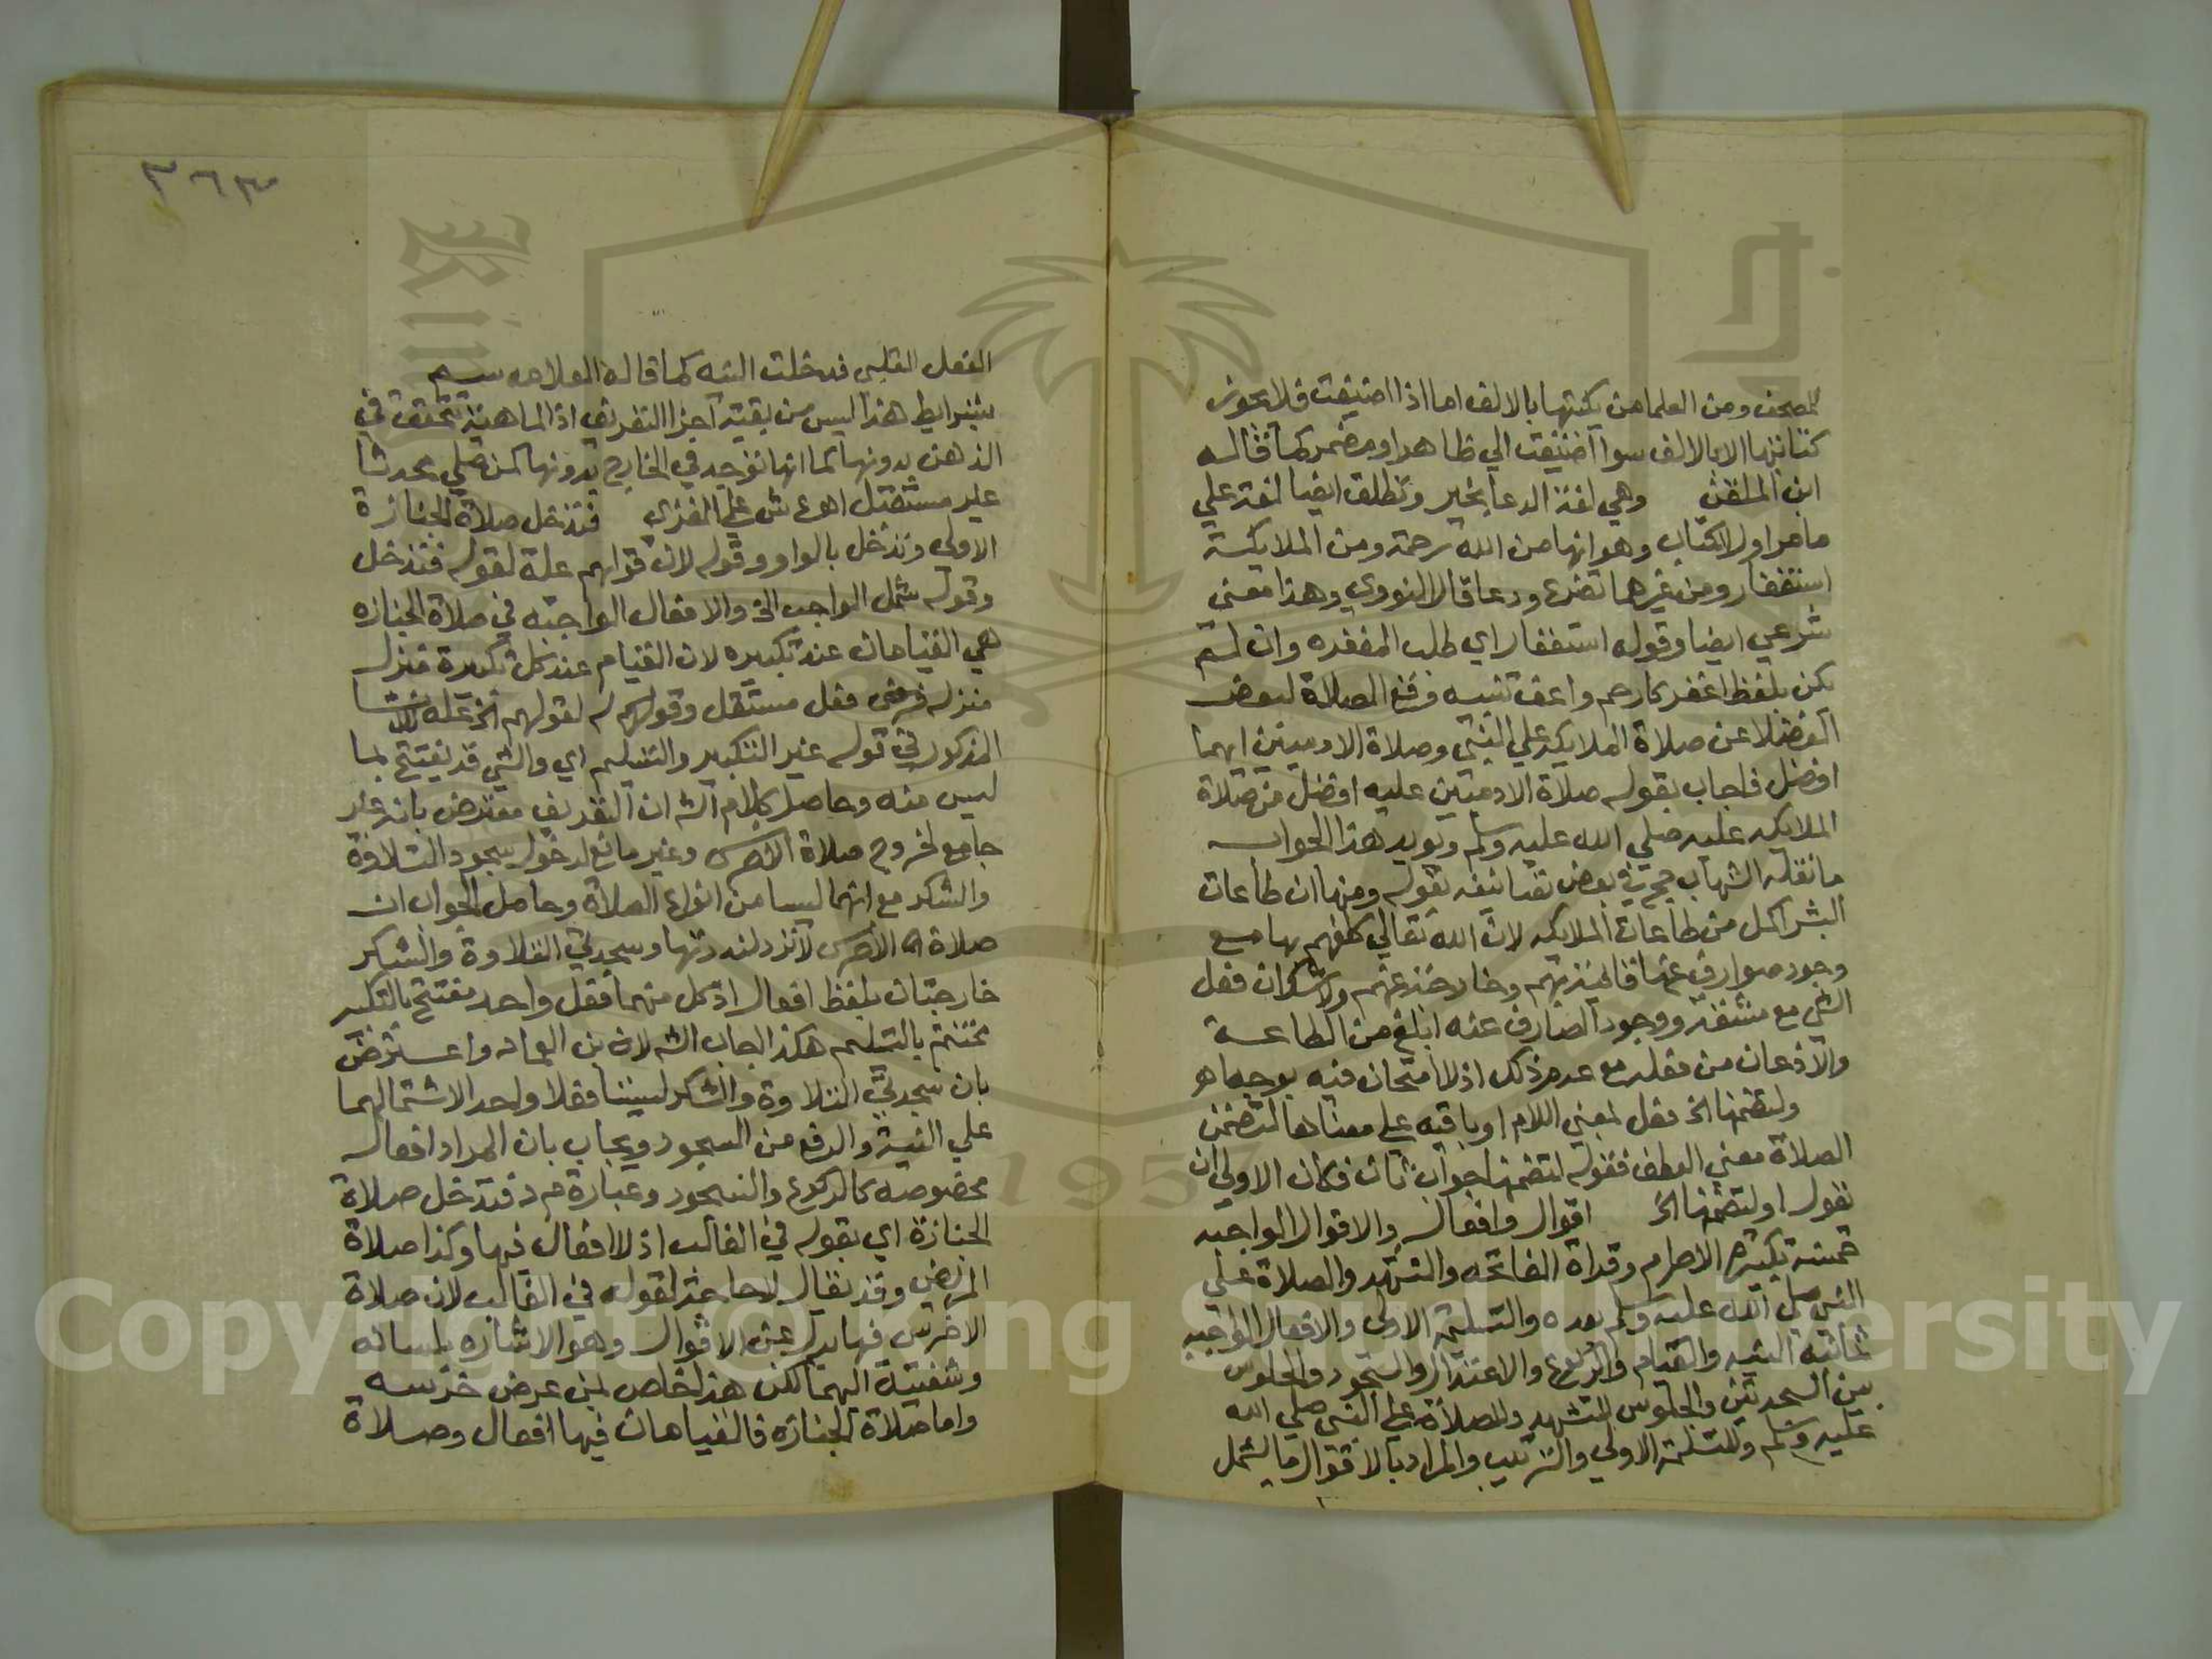 المصحف ومن العلما من يكتبها بالالف اما اذا اضيفت فلا يجوز
كتابتها الا بالالف سوا اضيفت الي ظاهر او مضمر كما قاله
ابن الملقن وهي لغة الدعا بخير وتطلق ايضا لغة علي
ما مر اول الكتاب وهو انها من الله رحمة ومن الملايكة
استغفار ومن غيرهما تضرع ودعا قال النووي وهذا معني
شرعي ايضا وقوله استغفار اي طلب المغفره وان لم
يكن بلفظ اغفر كارحم واعف تنبيه وقع الصلاة لبعض
الفضلا عن صلاة الملايكه علي النبي وصلاة الادميين ايهما
افضل فاجاب بقوله صلاة الادميين عليه افضل من صلاة
الملايكه عليه صلي الله عليه وسلم ويويد هذا الجواب
ما نقله الشهاب حج في بعض تصانيفه بقوله ومنها ان طاعات
البشر اكمل من طاعات الملايكه لان الله تعالي كلفهم بها مع
وجود صوارف عنها قايمة بهم وخارجة عنهم ولا شك ان فعل
الشي مع مشقة ووجود الصارف عنه ابلغ من الطاعة
والاذعان من فعله مع عدم ذلك اذ لا امتحان فيه بوجه اهو
ولتضمنها الخ فعل بمعني اللام او باقيه علي معناها لتضمن
الصلاة معني العطف فقوله لتضمنها جواب ثان فكان الاولي ان
نقول او لتضمنها الخ اقوال وافعال والاقوال الواجبه
خمسة تكبيرة الاحرام وقراة الفاتحه والتشهد والصلاة علي
النبي صلي الله عليه وسلم بعده والتسليمة الاولي والافعال الواجبه
ثمانية النيه والقيام والركوع والاعتدال والسجود والجلوس
بين السجدتين والجلوس للتشهد وللصلاة علي النبي صلي الله
عليه وسلم وللتسليمة الاولي والترتيب والمراد بالاقوال ما يشمل
٣٦٣
الفعل القلبي فدخلت النيه كما قاله العلامه سم
بشرايط هذا ليس من بقية اجزا التعريف اذ الماهية تتحقق في
الذهن بدونها كما انها توجد في الخارج بدونها كمن صلي محدثا
غير مستقبل اهو ع ش علي الغزي فتدخل صلاة الجنازة
الاولي وتدخل بالواو وقوله لان قولهم علة لقوله فتدخل
وقوله شمل الواجب الخ والافعال الواجبه في صلاة الجنازه
هي القيامات عند تكبيره لان القيام عند كل تكبيرة منزل
منزلة فعل مستقل وقولهم لقولهم الخ علة
المذكور في قوله غير التكبير والتسليم اي والشي قد يفتتح بما
ليس منه وحاصل كلام الش ان التعريف معترض بانه غير
جامع لخروج صلاة الاخرس وغير مانع لدخول سجود التلاوة
والشكر مع انهما ليسا من انواع الصلاة وحاصل الجواب ان
صلاة الاخرس لا ترد لندرتها وسجدتي التلاوة والشكر
خارجتان بلفظ افعال اذ كل منهما فعل واحد مفتتح بالتكبير
مختتم بالتسليم هكذا اجاب الش لابن العماد واعترض
بان سجدتي التلاوة والشكر ليستا فعلا واحدا لاشتمالهما
علي النية والرفع من السجود ويجاب بان المراد افعال
مخصوصه كالركوع والسجود وعبارة م ر فتدخل صلاة
الجنازة اي بقوله في الغالب اذ لا افعال فيها وكذا صلاة
المريض وقد يقال لا حاجة لقوله في الغالب لان صلاة
الاخرس فيها بدل عن الاقوال وهو الاشاره بلسانه
وشفتيه اليهما لكن هذا خاص بمن عرض خرسه
واما صلاة الجنازه فالقيامات فيها افعال وصلاة
Copyright © King Saud University
1957